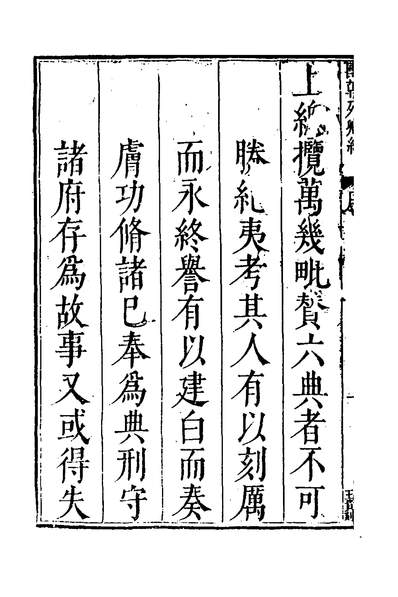 上總攬萬幾毗贊六典者不可
勝紀夷考其人有以刻厲
而永終譽有以建白而奏
膚功脩諸已奉爲典刑守
諸府存爲故事又或得失